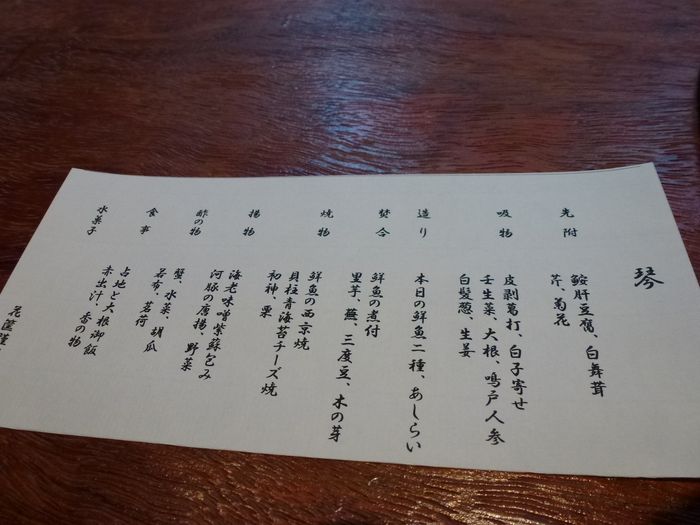 琴
先附
鮟肝豆腐、白舞茸
芹、菊花
吸物
皮剥葛打、白子寄せ
壬生菜、大根、鳴戸人参
白髪葱、生姜
造り
本日の鮮魚二種、あしらい
焚合
鮮魚の煮付
里芋、蕪、三度豆、木の芽
焼物
鮮魚の西京焼
貝柱青海苔チーズ焼
和神、栗
揚物
海老味噌紫蘇包み
河豚の唐揚、野菜
酢の物
蟹、水菜、胡瓜
若布、茗荷
食事
占地と大根御飯
赤出汁、香の物
水菓子
花筐謹